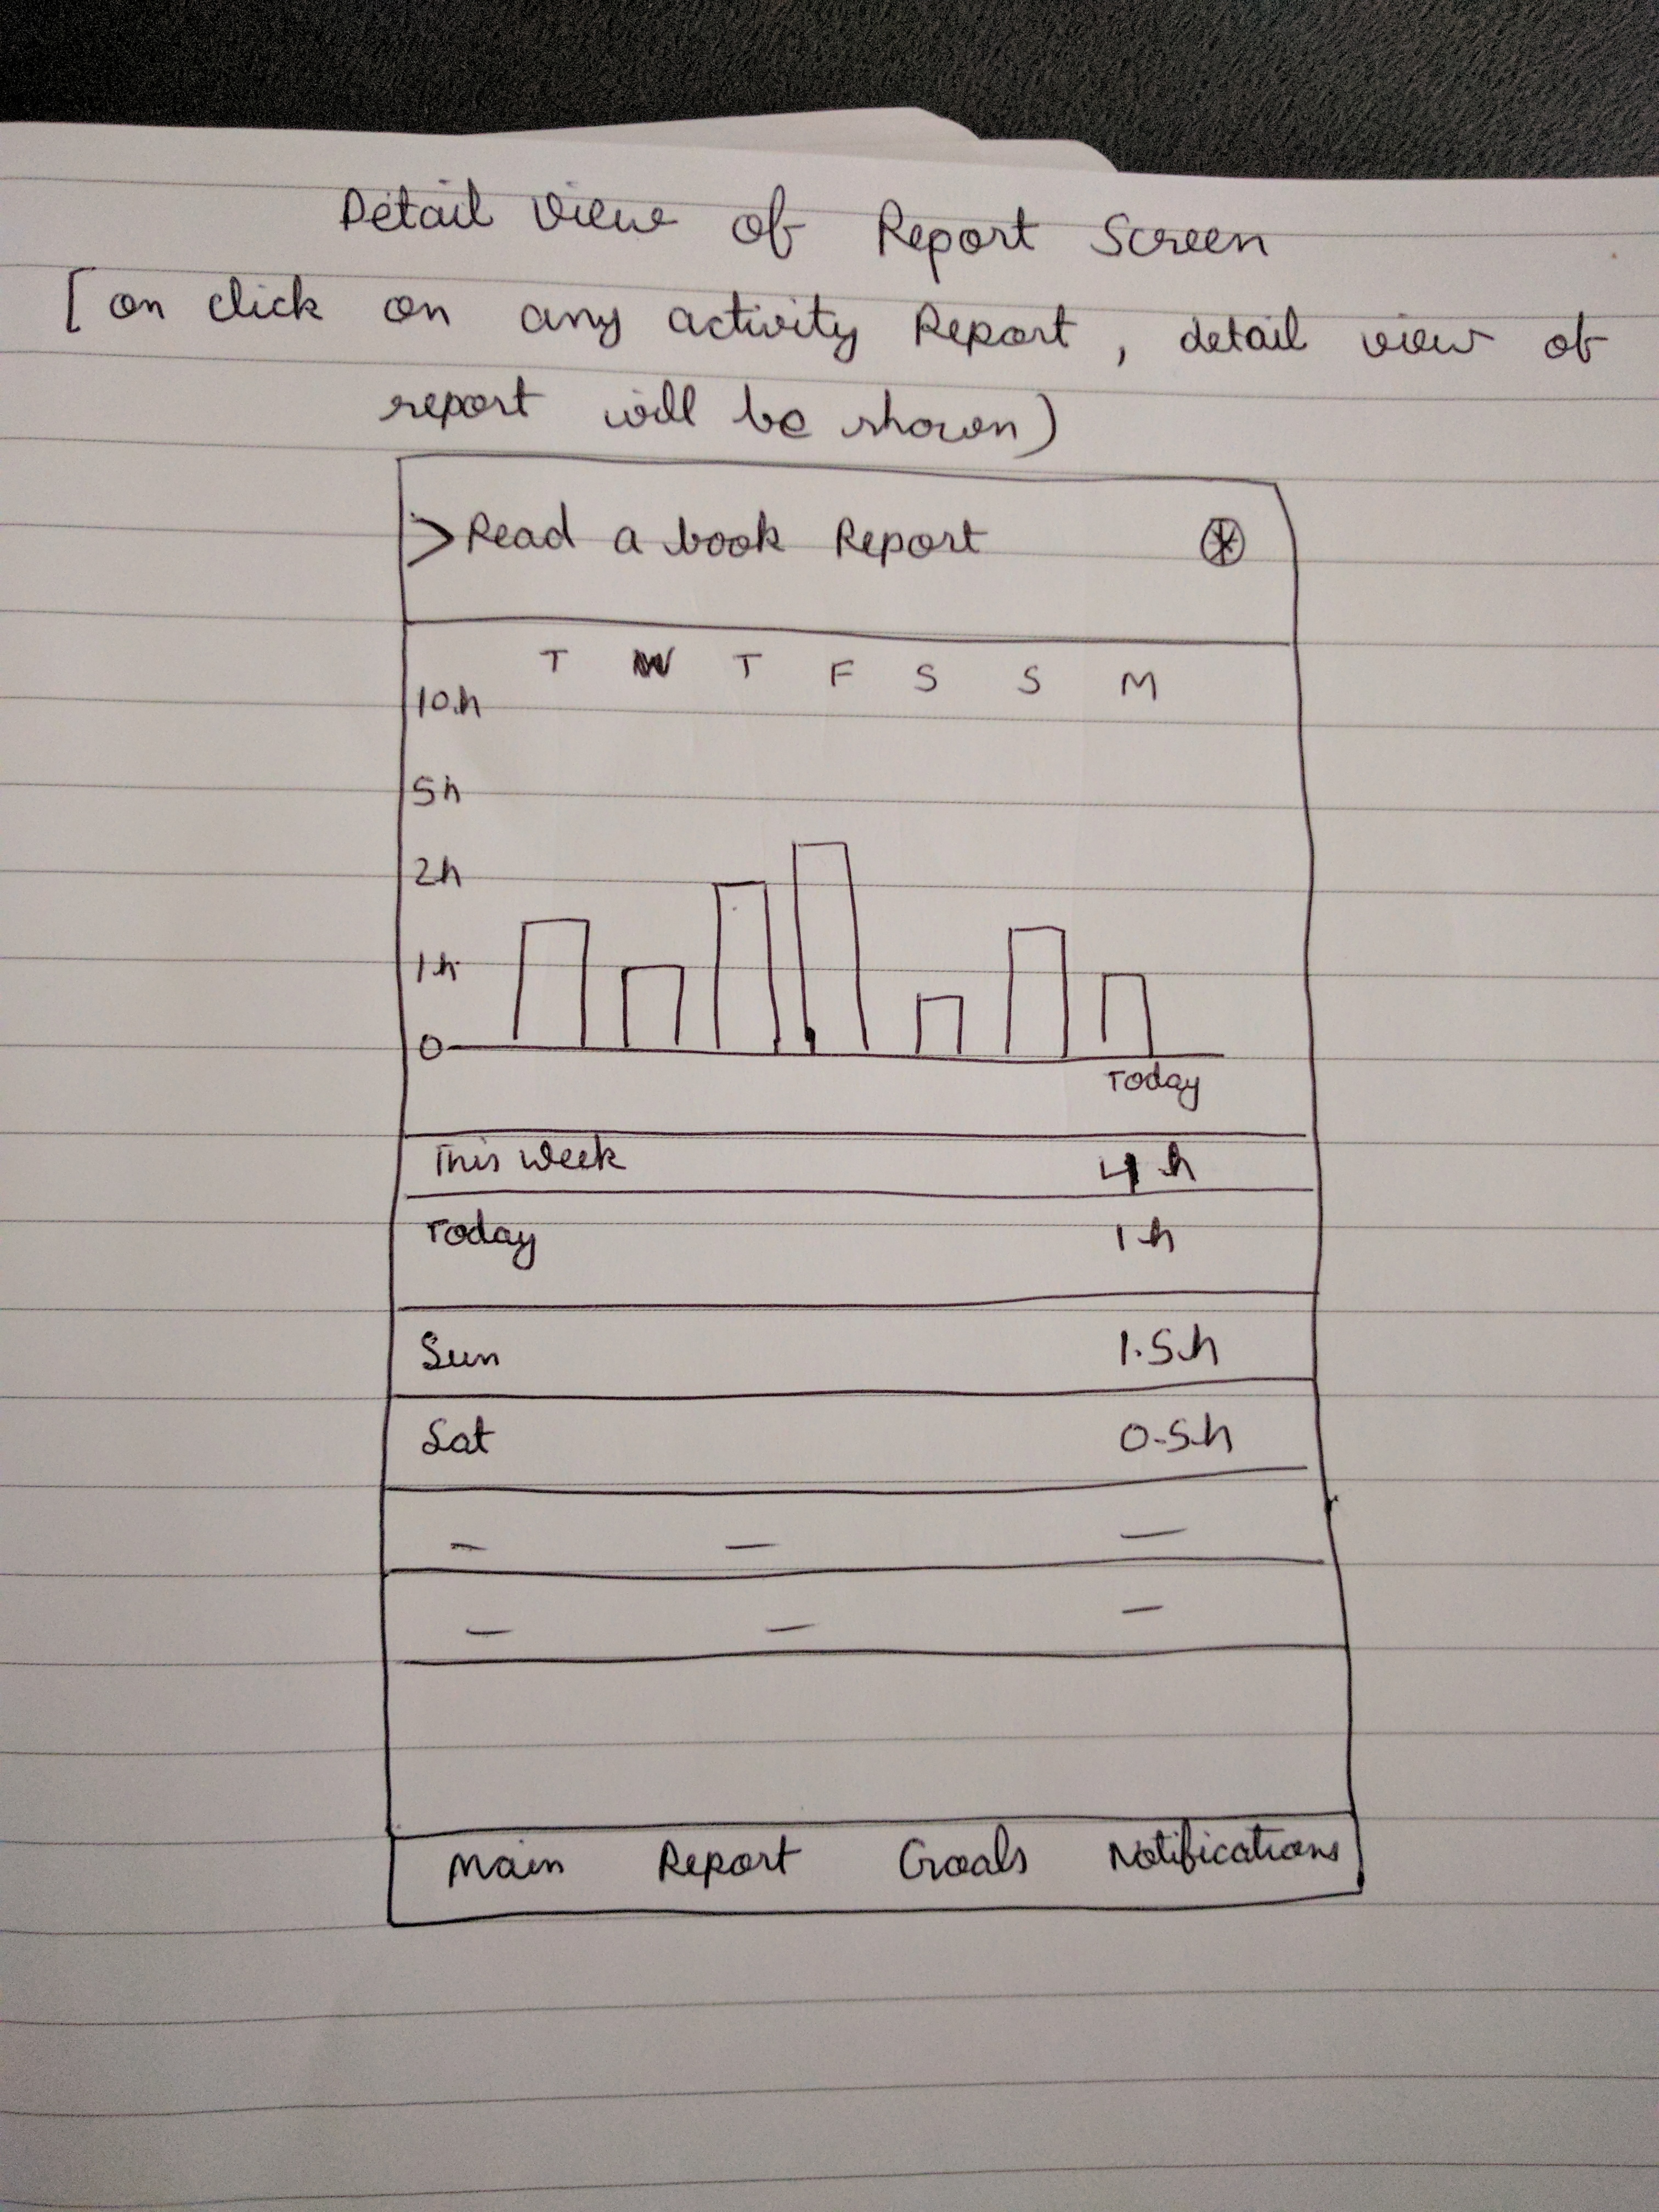 Detail view of Report Screen
[on click on any activity Report, detail view of
report will be shown)
> Read a book Report
T W T F S S M
10h
5h
2h
1h
0
Today
This week 4h
Today 1h
Sun 1.5h
Sat 0.5h
— — —
— — —
Main Report Goals Notifications